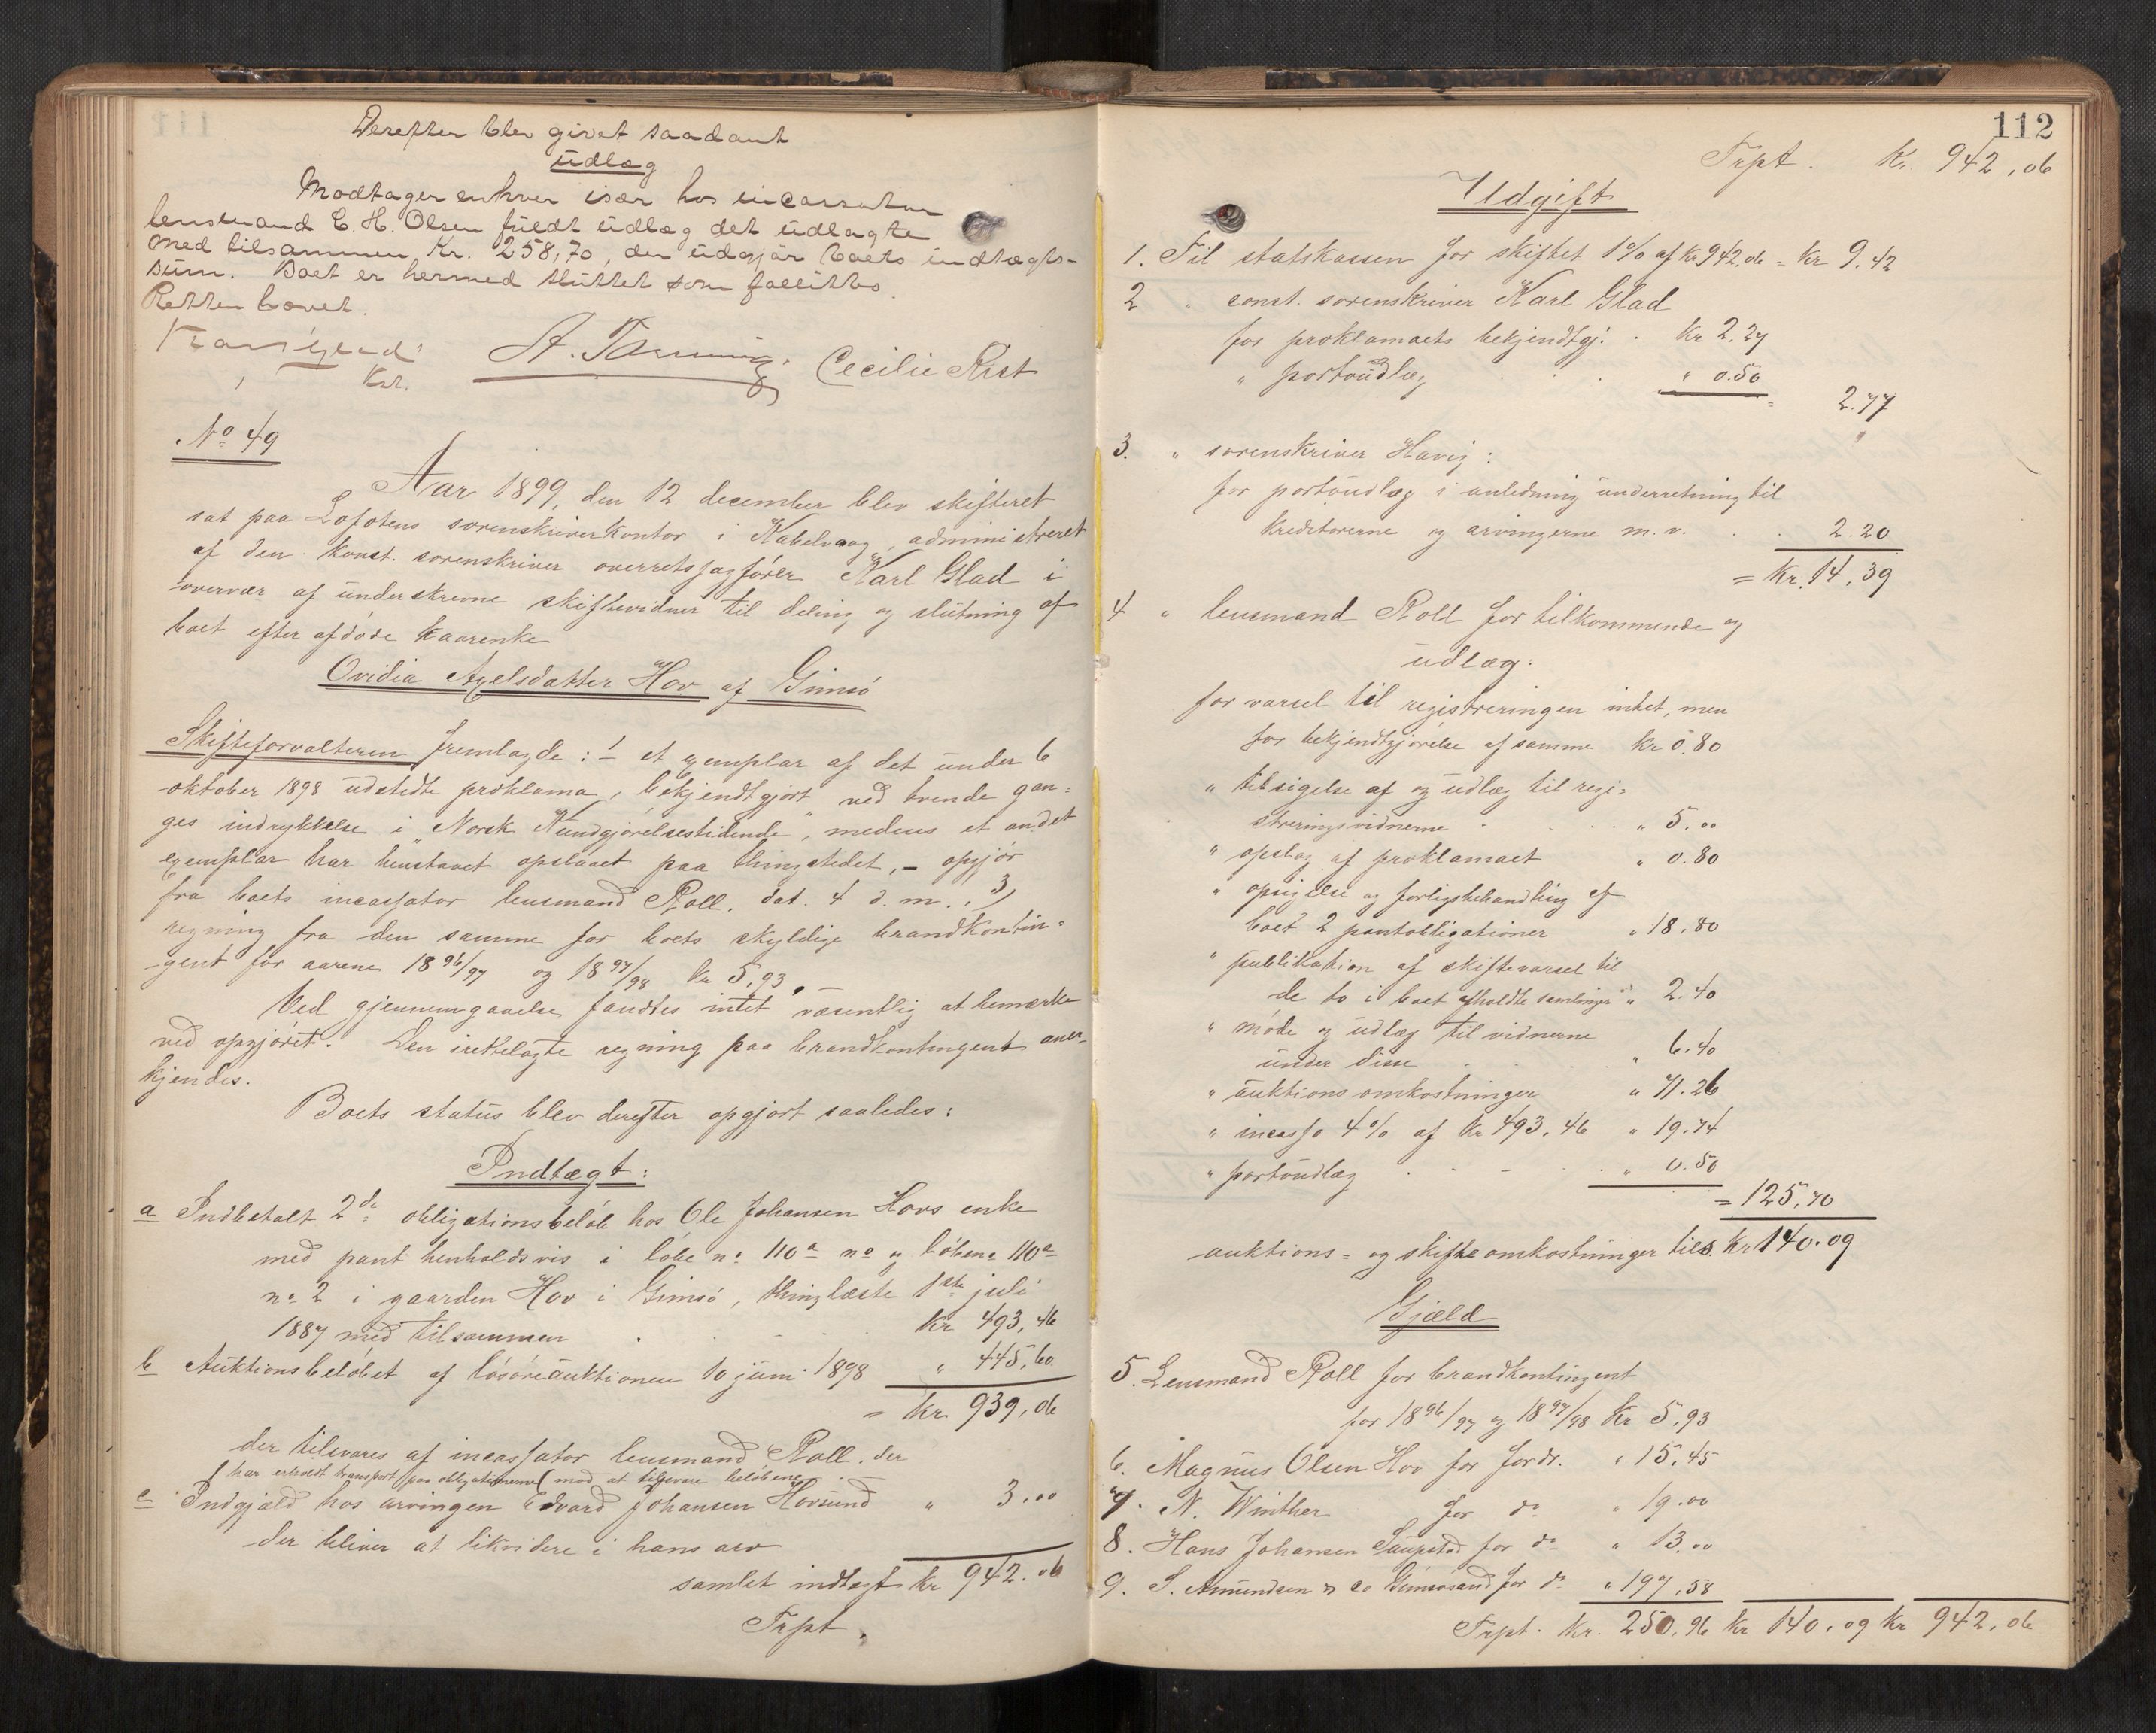 Derefter blev givet saadant
Udlæg
Modtager enhver især hos incassator
lensmand C. H. Olsen fuldt udlæg det udlagte
med tilsammen Kr. 258,70, der udgjør boets indtægts-
sum. Boet er hermed sluttet som fallittbo.
Retten hævet.
Karl Glad
Kst.
A. Cecilie Rist
No 49
Aar 1899, den 12 december blev skifteret
sat paa Lofotens sorenskriverkontor i Kabelvaag, administreret
af den konst. sorenskriver overretssagfører Karl Glad i
overvær af underskrevne skiftevidner til deling og slutning af
boet efter afdøde kaarenke
Ovidia Axelsdatter Hov af Gimsø
Skifteforvalteren fremlagde: 1 et exemplar af det under 6
oktober 1898 udstedte proklama, bekjendtgjort ved trende gan-
ges indrykkelse i "Norsk Kundgjørelsestidende", medens et andet
exemplar har henstaaet opslaaet paa thingstedet, – opgjør
fra boets incassator lensmand Roll. dat. 4 d. m., 3)
regning fra den samme for boets skyldige brandkontin-
gent for aarene 1896/97 og 1897/98 kr 5,93. –
Ved gjennemgaaelse fandtes intet væsentlig at bemærke
ved opgjøret. Den irettelagte regning paa brandkontingent aner-
kjendes.
Boets status blev derefter opgjort saaledes:
Indtægt:
a Indbetalt 2de obligationsbeløb hos Ole Johansen Hovs enke
med pant henholdsvis i løbe no 110a no og løbeno 110a
no 2 i gaarden Hov i Gimsø, thinglæste 1ste juli
1887 med tilsammen . . . kr 493,46
b Auktionsbeløbet af løsøreauktionen 10 juni 1898 " 445,60
= kr 939,06
der tilsvares af incassator lensmand Roll, der
har erholdt transport paa obligationerne mod at tilsvare beløbene
c Indgjæld hos arvingen Edvard Johansen Hovsund " 3.00
der bliver at likvidere i hans arv
samlet indtægt kr 942.06
Trpt.
112
Trpt. Kr. 942,06
Udgift
1. Til statskassen for skiftet 1% af kr 942,06 = kr 9.42
2 " const. sorenskriver Karl Glad
for proklamaets bekjendtgj: . kr 2.27
" portoudlæg . . " 0.50
= 2.77
3. " sorenskriver Havig:
for portoudlæg i anledning underretning til
kreditorerne og arvingerne m. v. . . 2.20
= Kr. 14,39
4 " lensmand Roll for tilkommende og
udlæg:
for varsel til registreringen intet, men
for bekjendtgjørelse af samme kr 0.80
" tilsigelse af og udlæg til regi-
streringsvidnerne . . . " 5.00
" opslag af proklamaet " 0.80
" opsigelse og forligsbehandling af
boet 2 pantobligationer " 18.80
" publikation af skiftevarsel til
de to i boet afholdte samlinger " 2.40
" møde og udlæg til vidnerne
under disse . . " 6.40
" auktionsomkostninger " 71.26
" incasso 4% af kr 493,46 " 19.74
" portoudlæg . . . " 0.50
= 125,70
auktions- og skifteomkostninger tils. kr 140.09
Gjæld
5. Lensmand Roll for brandkontingent
for 1896/97 og 1897/98 kr 5,93
6. Magnus Olsen Hov for fordr. " 15,45
7. N. Winther for do " 19.00
8. Hans Johansen Saupstad for do " 13.00
9. S. Amundsen & co Gimsøsand for do " 197,58
Trpt. kr. 250.96 kr 140.09 kr 942.06